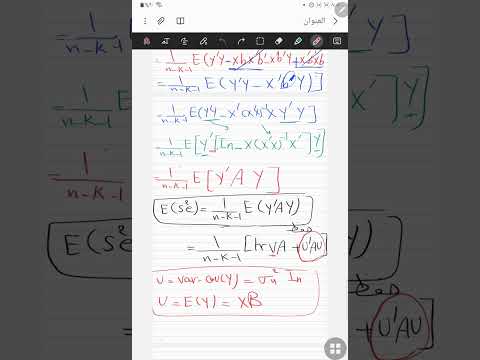 العنوان
= 1/(n-k-1) E(y'y - xb x'b' - xb'y + x'b'xb
= 1/(n-k-1) E(y'y - x'b'Y)]
= 1/(n-k-1) E(y'y - x'(x'x)⁻¹ x y' Y]
= 1/(n-k-1) E[y'[In - x(x'x)⁻¹ x'] Y]
= 1/(n-k-1) E[Y'A Y]
E(S²e) = 1/(n-k-1) E(y'AY)
= 1/(n-k-1) [tr vA + U'AU]
υ = var-cov(Y) = σu² In
U = E(Y) = XB
+ U'AU]